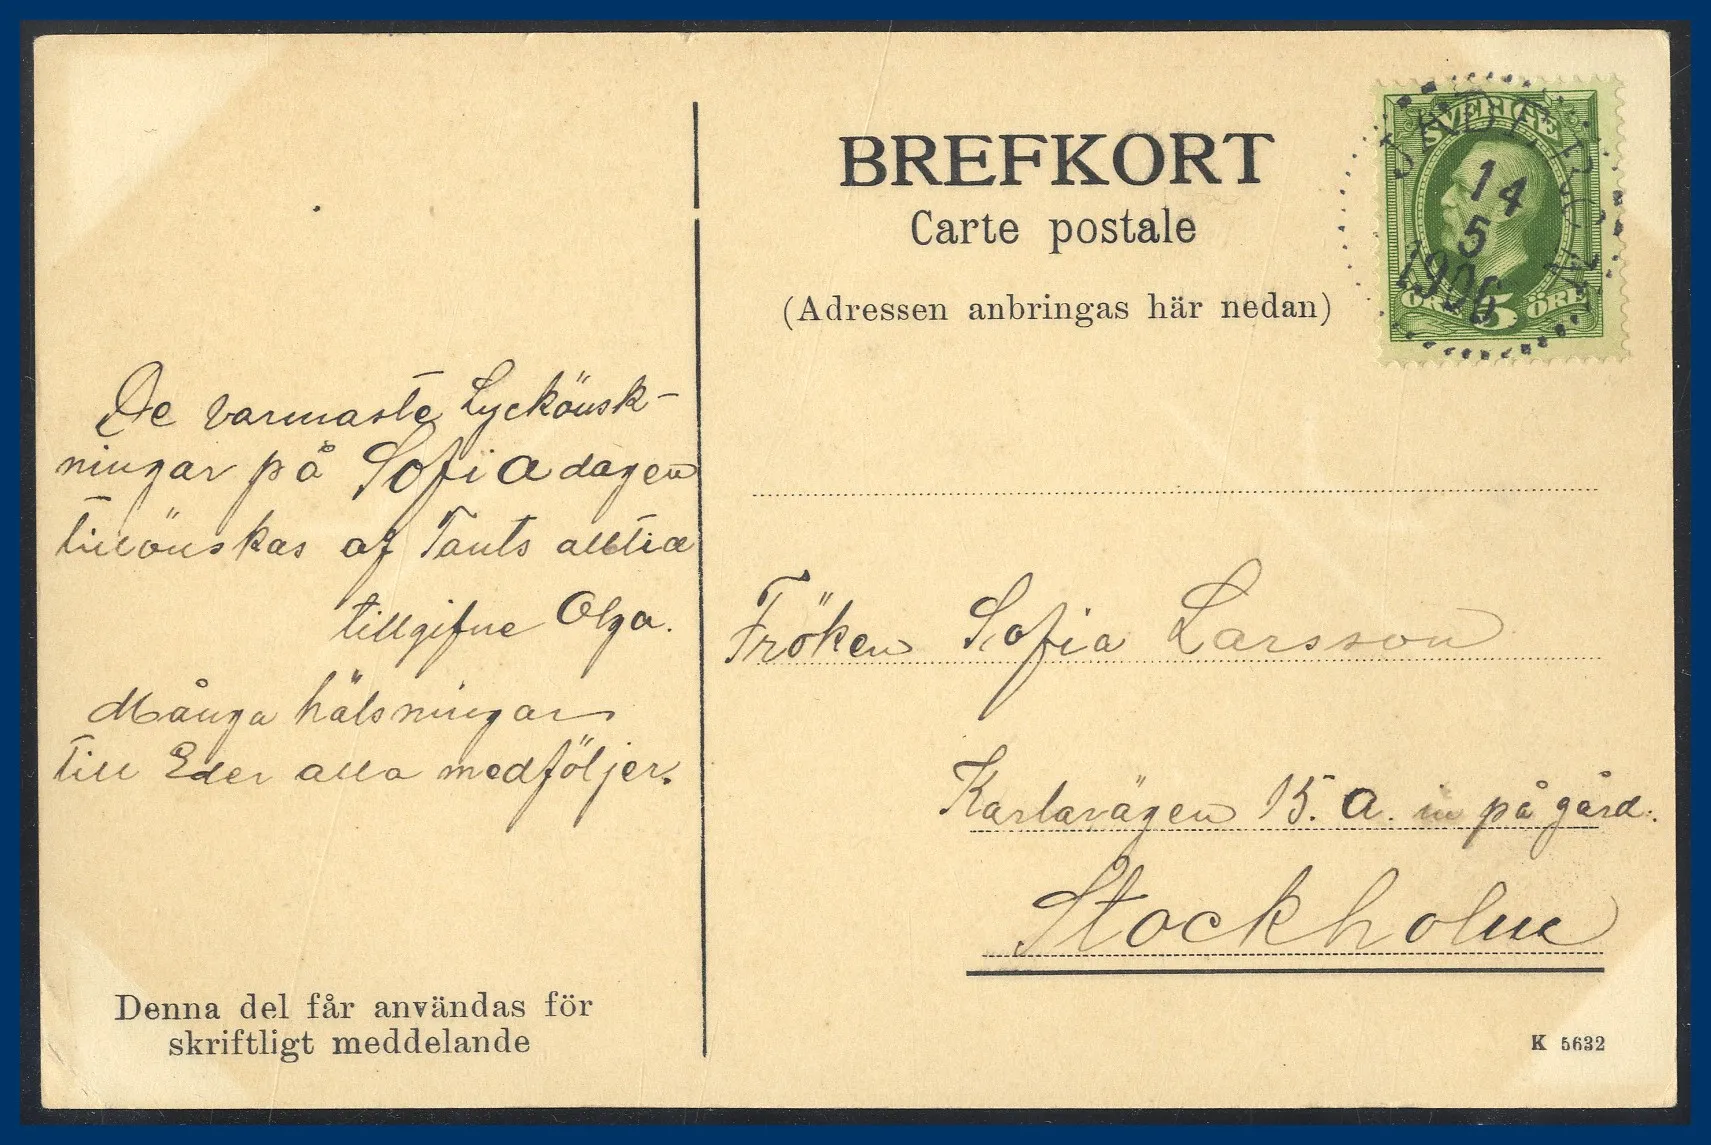 BREFKORT
Carte postale
(Adressen anbringas här nedan)
SVERIGE
14
5
1906
ÖRE 5 ÖRE
De varmaste Lyckönsk-
ningar på Sofiadagen
tillönskas af Tants alltid
tillgifne Olga.
Många hälsningar
till Eder alla medföljer.
Fröken Sofia Larsson
Karlavägen 15. A. in på gård.
Stockholm
Denna del får användas för
skriftligt meddelande
K 5632